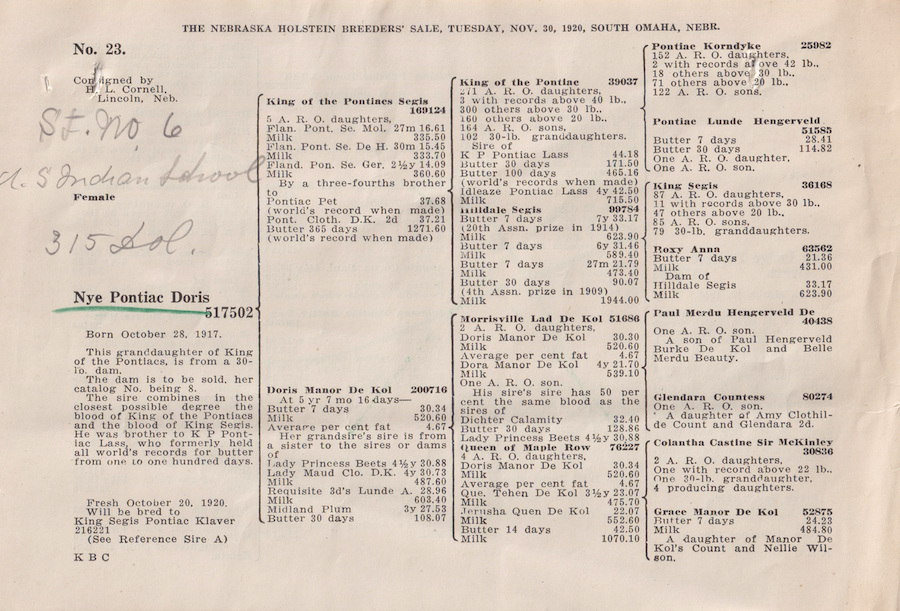 THE NEBRASKA HOLSTEIN BREEDERS' SALE, TUESDAY, NOV. 30, 1920, SOUTH OMAHA, NEBR.
No. 23.
Consigned by
H. L. Cornell,
Lincoln, Neb.
St. No 6
U. S Indian School
Female
315 Dol.
Nye Pontiac Doris
517502
Born October 28, 1917.
This granddaughter of King
of the Pontiacs, is from a 30-
lb. dam.
The dam is to be sold, her
catalog No. being 8.
The sire combines in the
closest possible degree the
blood of King of the Pontiacs
and the blood of King Segis.
He was brother to K P Pont-
iac Lass, who formerly held
all world's records for butter
from one to one hundred days.
Fresh October 20, 1920.
Will be bred to
King Segis Pontiac Klaver
216221
(See Reference Sire A)
K B C
King of the Pontiacs Segis
169124
5 A. R. O. daughters,
Flan. Pont. Se. Mol. 27m 16.61
Milk 335.50
Flan. Pont. Se. De H. 30m 15.45
Milk 333.70
Fland. Pon. Se. Ger. 2½y 14.09
Milk 360.60
By a three-fourths brother
to
Pontiac Pet 37.68
(world's record when made)
Pont. Cloth. D.K. 2d 37.21
Butter 365 days 1271.60
(world's record when made)
Doris Manor De Kol 200716
At 5 yr 7 mo 16 days—
Butter 7 days 30.34
Milk 520.60
Average per cent fat 4.67
Her grandsire's sire is from
a sister to the sires or dams
of
Lady Princess Beets 4½y 30.88
Lady Maud Clo. D.K. 4y 30.73
Milk 487.60
Requisite 3d's Lunde A. 28.96
Milk 603.40
Midland Plum 3y 27.53
Butter 30 days 108.07
King of the Pontiac 39037
271 A. R. O. daughters,
3 with records above 40 lb.,
300 others above 30 lb.,
160 others above 20 lb.
164 A. R. O. sons.
102 30-lb. granddaughters.
Sire of
K P Pontiac Lass 44.18
Butter 30 days 171.50
Butter 100 days 465.16
(world's records when made)
Idleaze Pontiac Lass 4y 42.50
Milk 715.50
Hilldale Segis 99784
Butter 7 days 7y 33.17
(20th Assn. prize in 1914)
Milk 623.90
Butter 7 days 6y 31.46
Milk 589.40
Butter 7 days 27m 21.79
Milk 473.40
Butter 30 days 90.07
(4th Assn. prize in 1909)
Milk 1944.00
Morrisville Lad De Kol 51686
2 A. R. O. daughters,
Doris Manor De Kol 30.30
Milk 520.60
Average per cent fat 4.67
Dora Manor De Kol 4y 21.70
Milk 539.10
One A. R. O. son.
His sire's sire has 50 per
cent the same blood as the
sires of
Dichter Calamity 32.40
Butter 30 days 128.86
Lady Princess Beets 4½y 30.88
Queen of Maple Row 76227
4 A. R. O. daughters,
Doris Manor De Kol 30.34
Milk 520.60
Average per cent fat 4.67
Que. Tehen De Kol 3½y 23.07
Milk 475.70
Jerusha Quen De Kol 22.07
Milk 552.60
Butter 14 days 42.50
Milk 1070.10
Pontiac Korndyke 25982
152 A. R. O. daughters,
2 with records above 42 lb.,
18 others above 30 lb.,
71 others above 20 lb.
122 A. R. O. sons.
Pontiac Lunde Hengerveld
51585
Butter 7 days 28.41
Butter 30 days 114.82
One A. R. O. daughter,
One A. R. O. son.
King Segis 36168
87 A. R. O. daughters,
11 with records above 30 lb.,
47 others above 20 lb.
85 A. R. O. sons.
79 30-lb. granddaughters.
Roxy Anna 63562
Butter 7 days 21.36
Milk 431.00
Dam of
Hilldale Segis 33.17
Milk 623.90
Paul Merdu Hengerveld De
40438
One A. R. O. son.
A son of Paul Hengerveld
Burke De Kol and Belle
Merdu Beauty.
Glendara Countess 80274
One A. R. O. son.
A daughter of Amy Clothil-
de Count and Glendara 2d.
Colantha Castine Sir McKinley
30836
2 A. R. O. daughters,
One with record above 22 lb.,
One 30-lb. granddaughter,
4 producing daughters.
Grace Manor De Kol 52875
Butter 7 days 24.23
Milk 484.80
A daughter of Manor De
Kol's Count and Nellie Wil-
son.